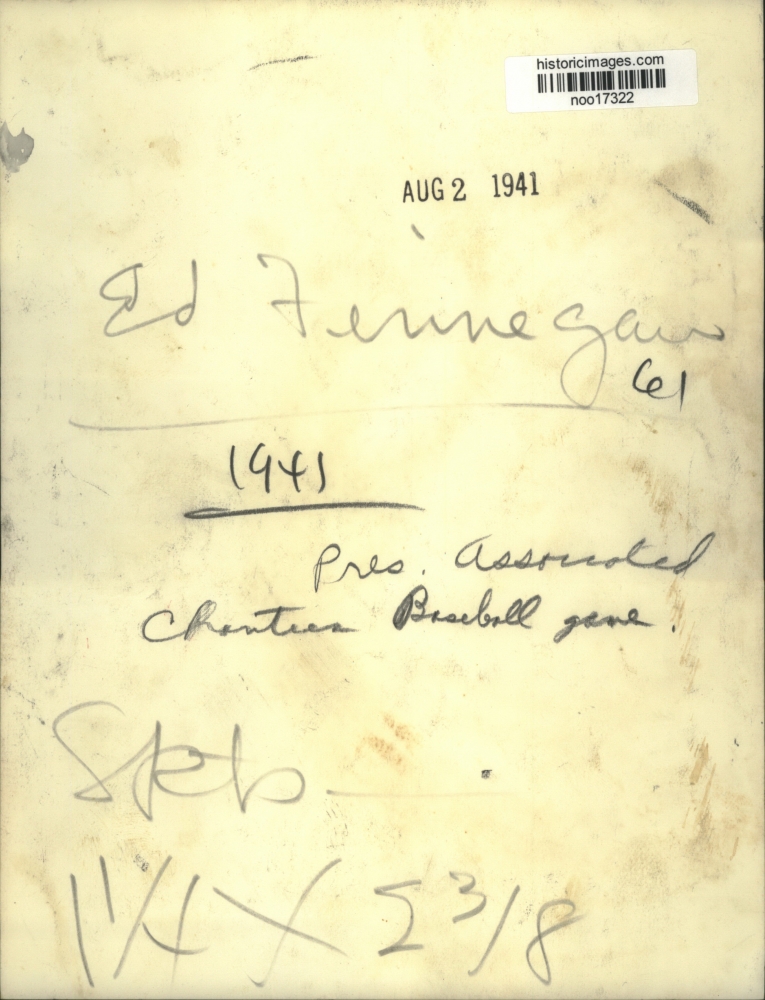 historicimages.com
noo17322
AUG 2 1941
Ed Finnegan
61
1941
Pres. Associated
Charities Baseball game.
11/4 X 5 3/8